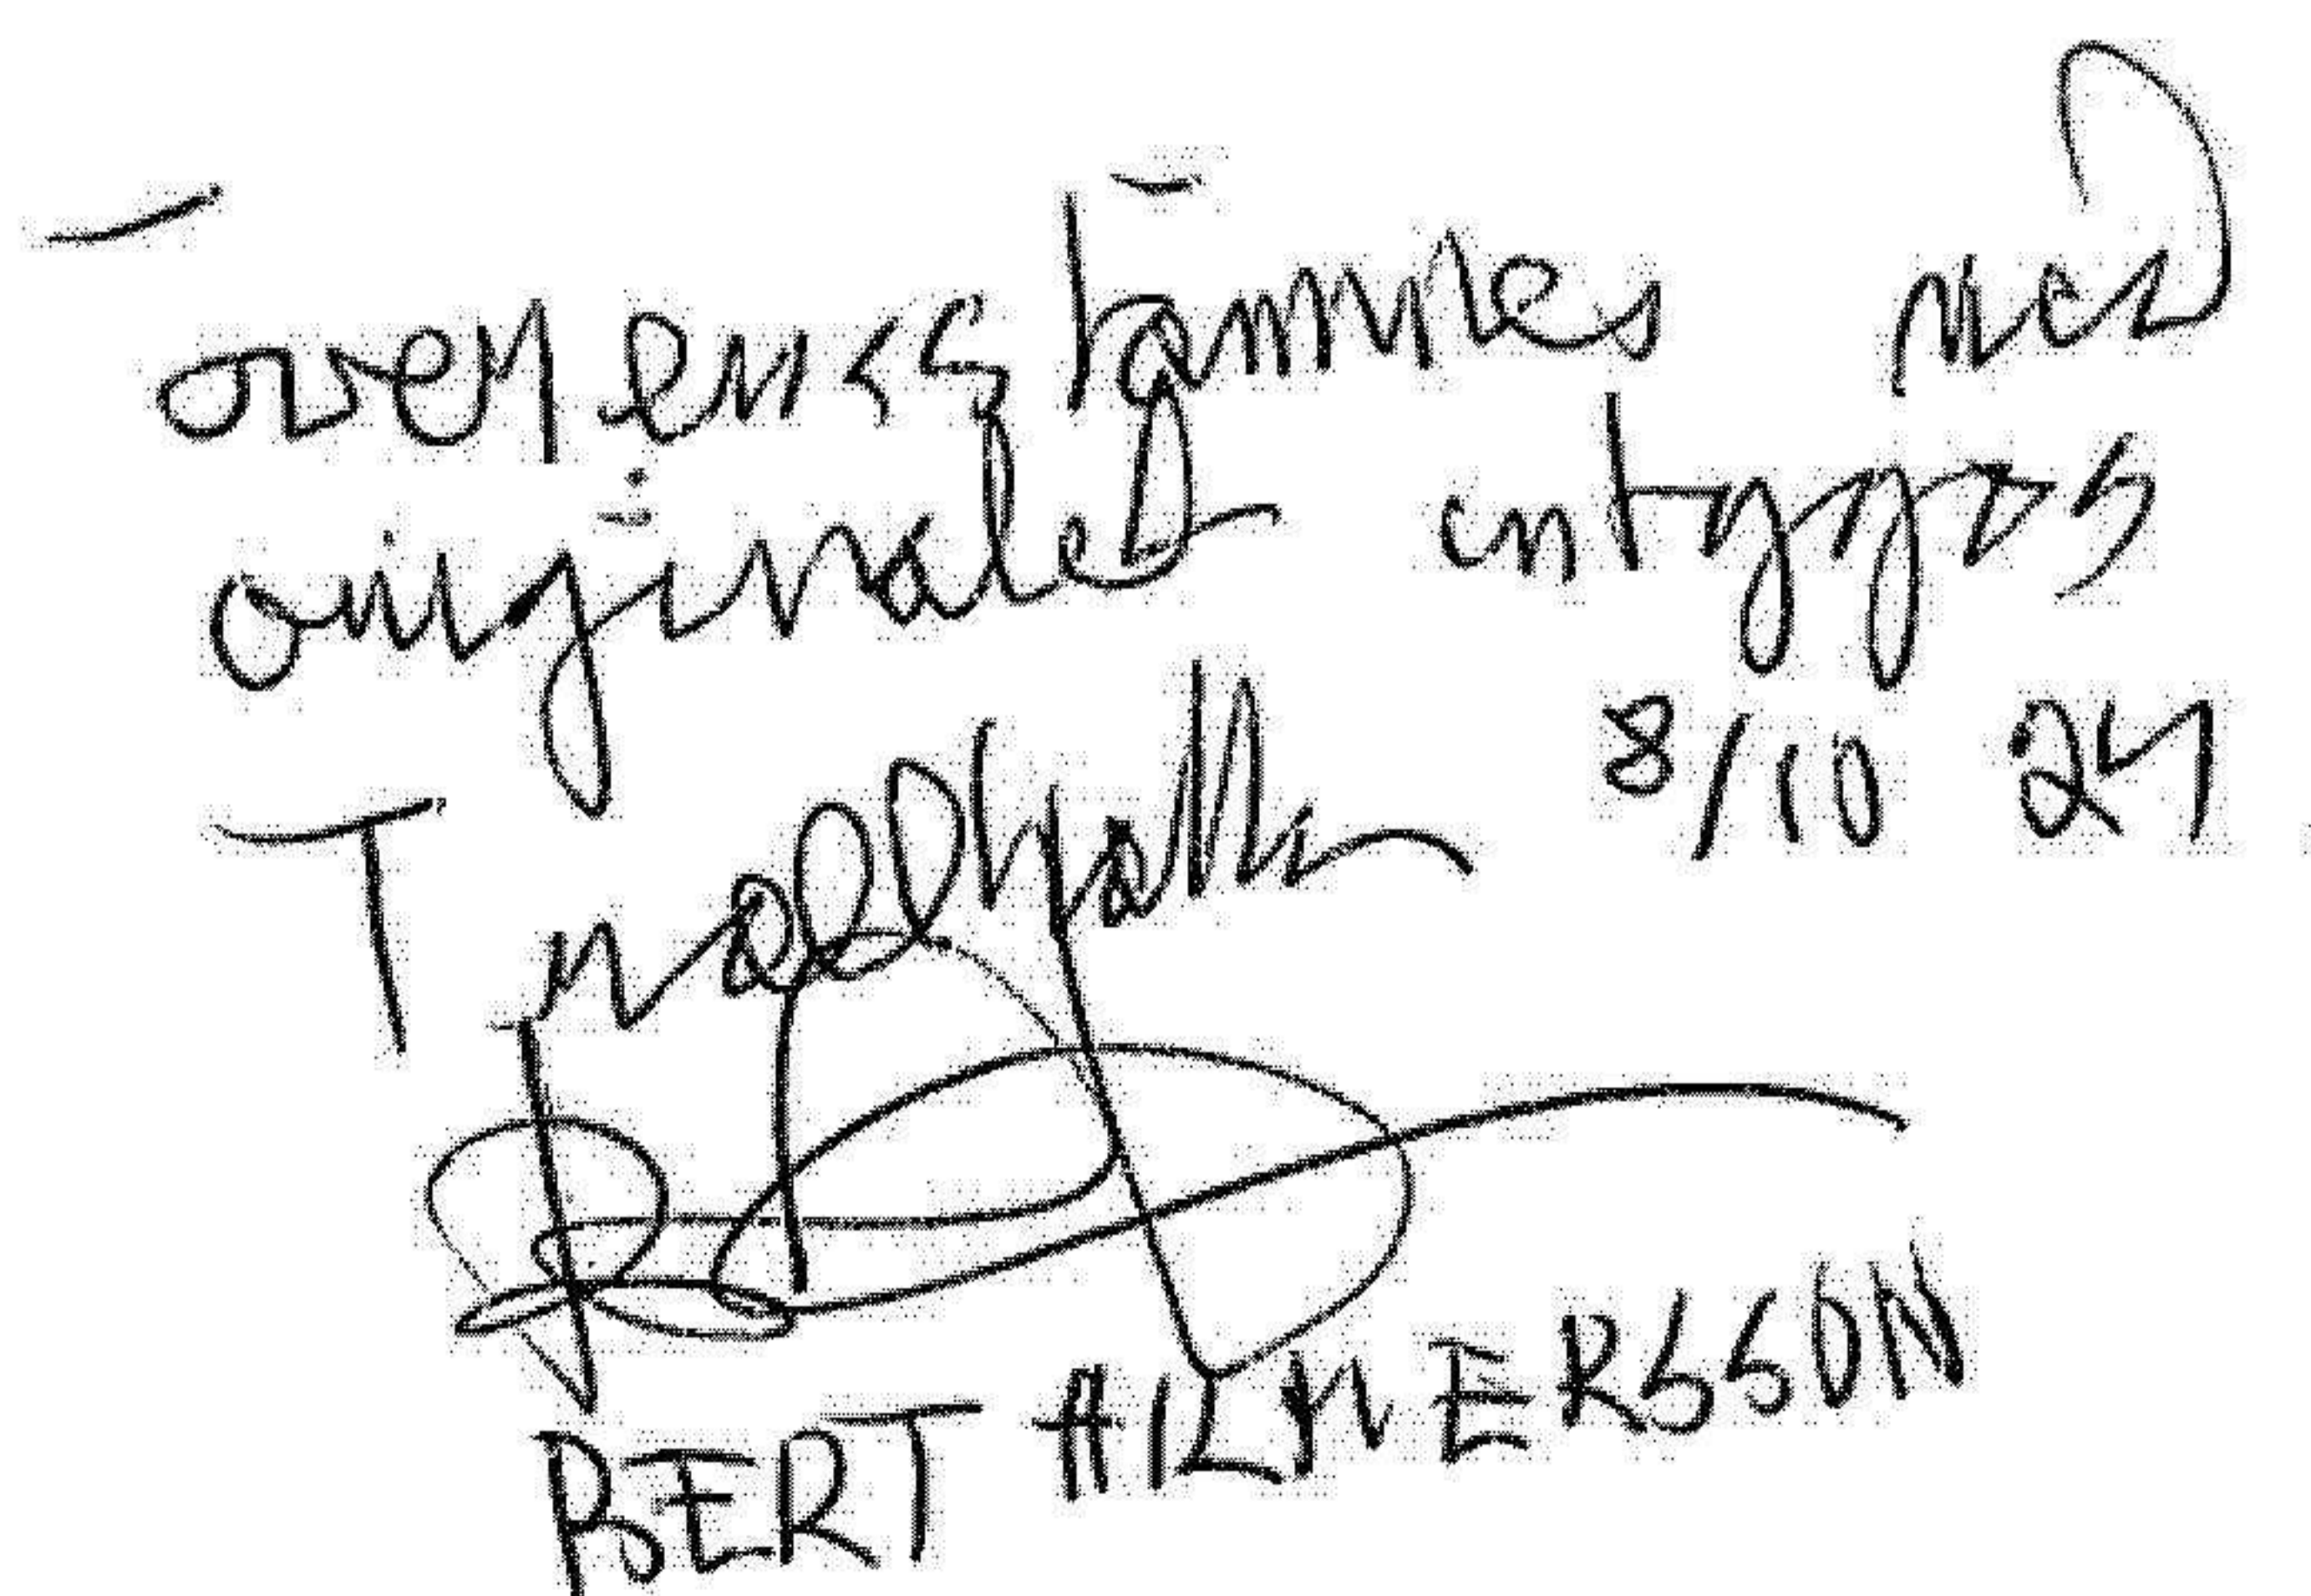 överensstämmelse med
originalet intygas
8/10 24
Trollhättan
BERT HILMERSSON